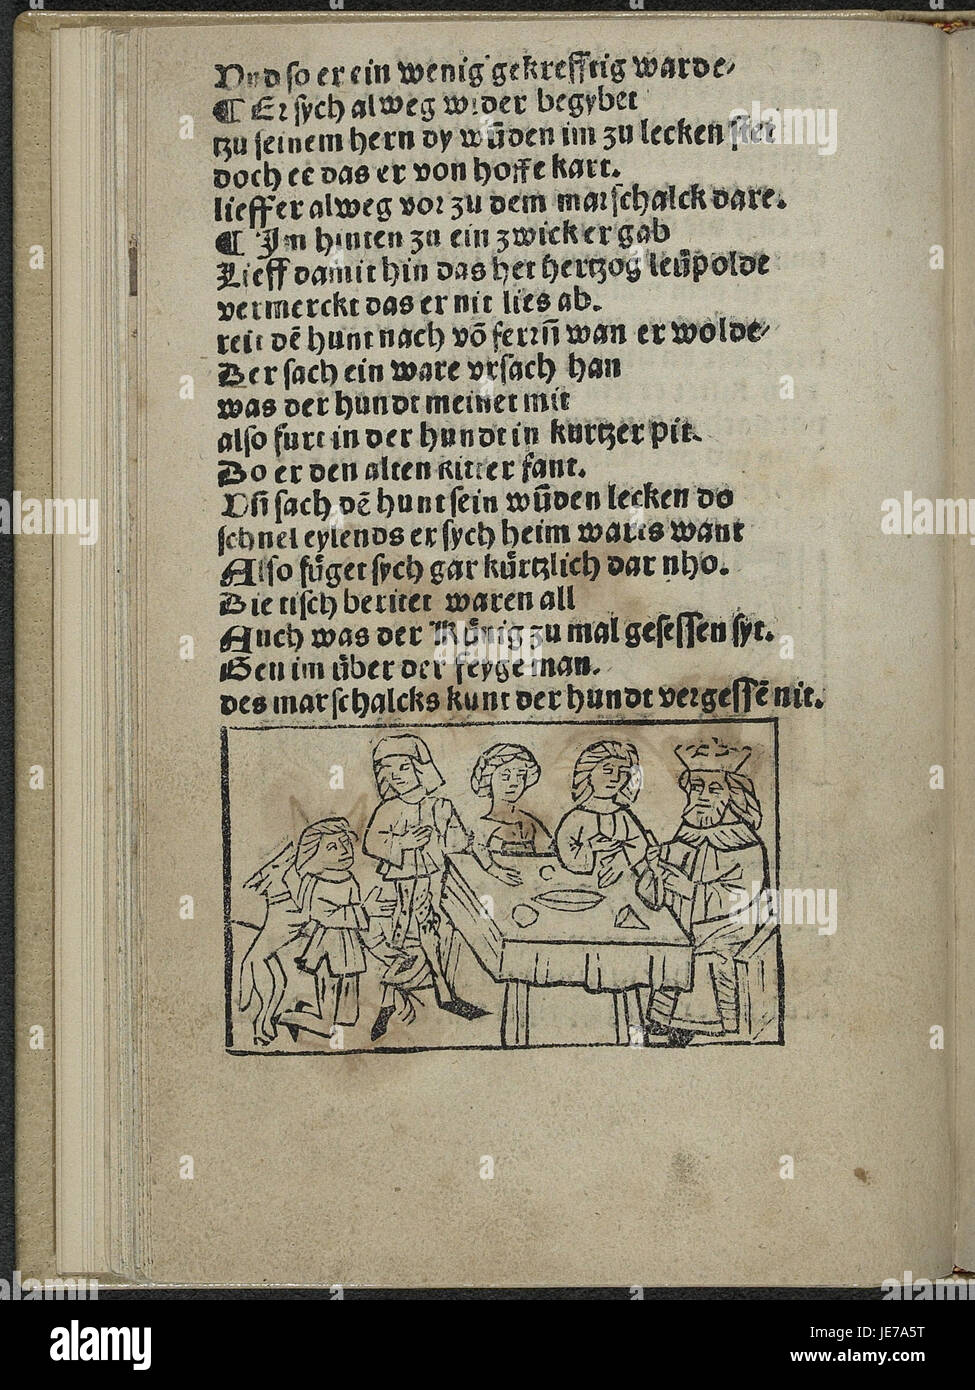 Vnd so er ein wenig gekrefftig warde/
¶ Er sych alweg wider begybet
tzu seinem hern dy wũden im zu lecken stet
doch ee das er von hoffe kart.
lieff er alweg vor zu dem marschalck dare.
¶ Im hinten zu ein zwick er gab
Lieff damit hin das her hertzog leŭpolde
vermerckt das er nit lies ab.
reit dē hunt nach võ ferrñ wan er wolde/
Der sach ein ware vrsach han
was der hundt meinet mit
also furt in der hundt in kurtzer pit.
Do er den alten Ritter fant.
Vñ sach dē hunt sein wũden lecken do
schnel eylends er sych heim warts want
Also fůget sych gar kůrtzlich dar nho.
Die tisch beritet waren all
Auch was der Kůnig zu mal gesessen syt.
Gen im ůber der feyge man.
des marschalcks kunt der hundt vergessē nit.
alamy
JE7A5T
www.alamy.com